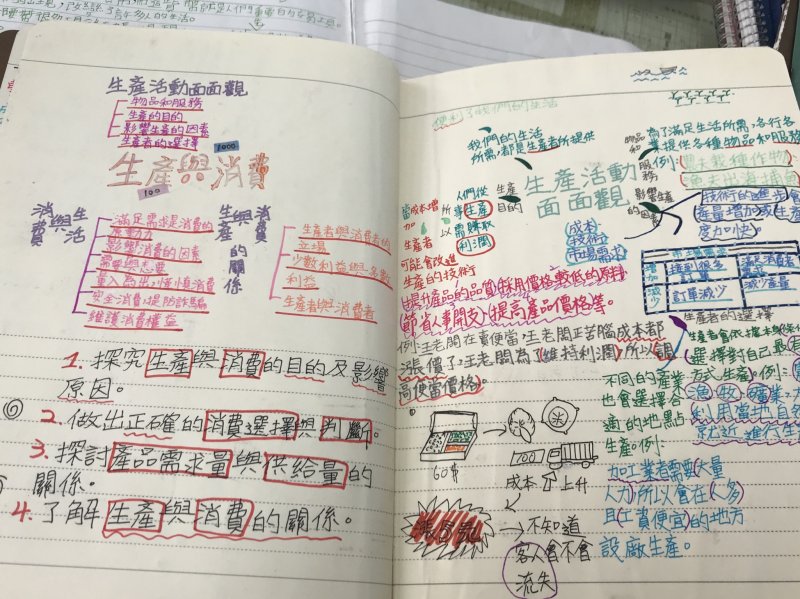 生產活動面面觀
物品和服務
生產的目的
影響生產的因素
生產者的選擇
1000
生產與消費
100
消費與生活
滿足需求是消費的
原動力
影響消費的因素
需要與想要
量入為出、謹慎消費
安全消費、提防詐騙
維護消費權益
生產與消費的關係
生產者與消費者的
立場
少數利益與多數
利益
生產者與消費者
1. 探究生產與消費的目的及影響
原因。
2. 做出正確的消費選擇與判斷。
3. 探討產品需求量與供給量的
關係。
4. 了解生產與消費的關係。
便利了我們的生活
我們的生活
所需,都是生產者所提供
生產活動
面面觀
物品和服務
為了滿足生活所需,各行各
業提供各種物品和服務
例:農夫栽種作物
漁夫出海捕魚
生產目的
人們從
事生產
所以需賺取
利潤
當成本增
加
生產者
可能會改進
生產的技術
提升產品的品質,採用價格較低的原料
節省人事開支,提高產品價格等。
例:王老闆在賣便當,王老闆正苦惱成本都
漲價了,王老闆為了維持利潤,所以調
高便當價格。
60元
成本上升
不知道
客人會不會
流失
影響生產的因素
成本
技術
市場需求
技術的進步會
產量增加或生產
度加快。
訂單減少
減少產量
生產者的選擇
生產者會依據本身條件
選擇對自己最有
方式生產。例:農
漁、牧、礦業
利用當地自然
就近進行生
不同的產業
也會選擇合
適的地點
生產。例:
加工業者需要大量
人力,所以會在人多
且工資便宜的地方
設廠生產。